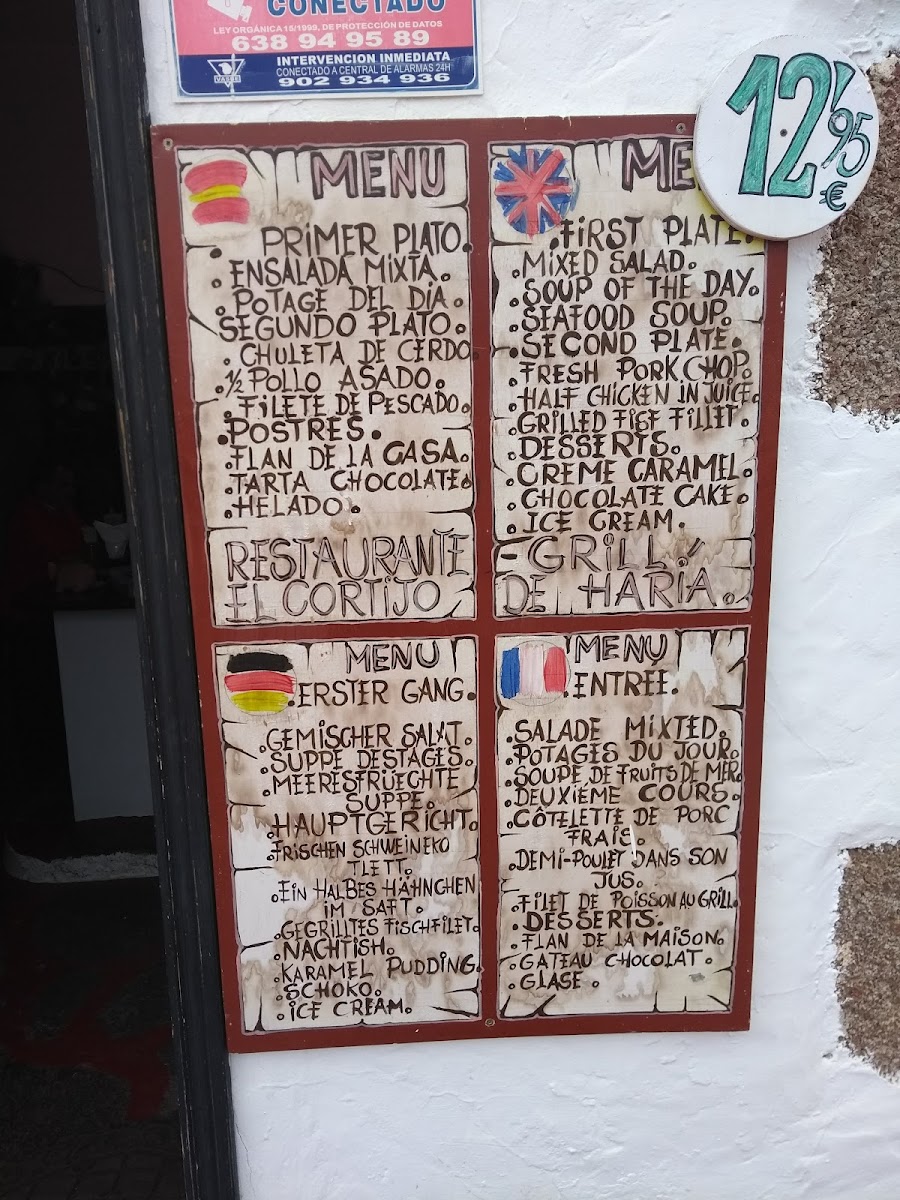 CONECTADO
LEY ORGÁNICA 15/1999, DE PROTECCIÓN DE DATOS
638 94 95 89
INTERVENCION INMEDIATA
CONECTADO A CENTRAL DE ALARMAS 24H
902 934 936
12'95
€
MENU
PRIMER PLATO.
. ENSALADA MIXTA.
. POTAGE DEL DIA.
SEGUNDO PLATO.
. CHULETA DE CERDO
. ½ POLLO ASADO.
. FILETE DE PESCADO.
. POSTRES.
. FLAN DE LA CASA.
. TARTA CHOCOLATE.
. HELADO.
RESTAURANTE
EL CORTIJO
. FIRST PLATE.
. MIXED SALAD.
. SOUP OF THE DAY.
. SEAFOOD SOUP.
. SECOND PLATE.
. FRESH PORK CHOP.
. HALF CHICKEN IN JUICE.
. GRILLED FISF FILLET.
. DESSERTS.
. CREME CARAMEL.
. CHOCOLATE CAKE.
. ICE CREAM.
- GRILL
DE HARIA.
MENU
. ERSTER GANG.
. GEMISCHER SALAT.
. SUPPE DESTAGES.
. MEERESFRÜECHTE
SUPPE.
. HAUPTGERICHT.
. FRISCHEN SCHWEINEKO
TLETT.
. EIN HALBES HÄHNCHEN
IM SAFT.
. GEGRILLTES FISCHFILET.
. NACHTISH.
. KARAMEL PUDDING.
. SCHOKO.
. ICE CREAM.
MENU
. ENTRÉE.
. SALADE MIXTED.
. POTAGES DU JOUR.
. SOUPE DE FRUITS DE MER.
. DEUXIÈME COURS.
. CÔTELETTE DE PORC
FRAIS.
. DEMI-POULET DANS SON
JUS.
. FILET DE POISSON AU GRILL.
. DESSERTS.
. FLAN DE LA MAISON.
. GATEAU CHOCOLAT.
. GLASE.